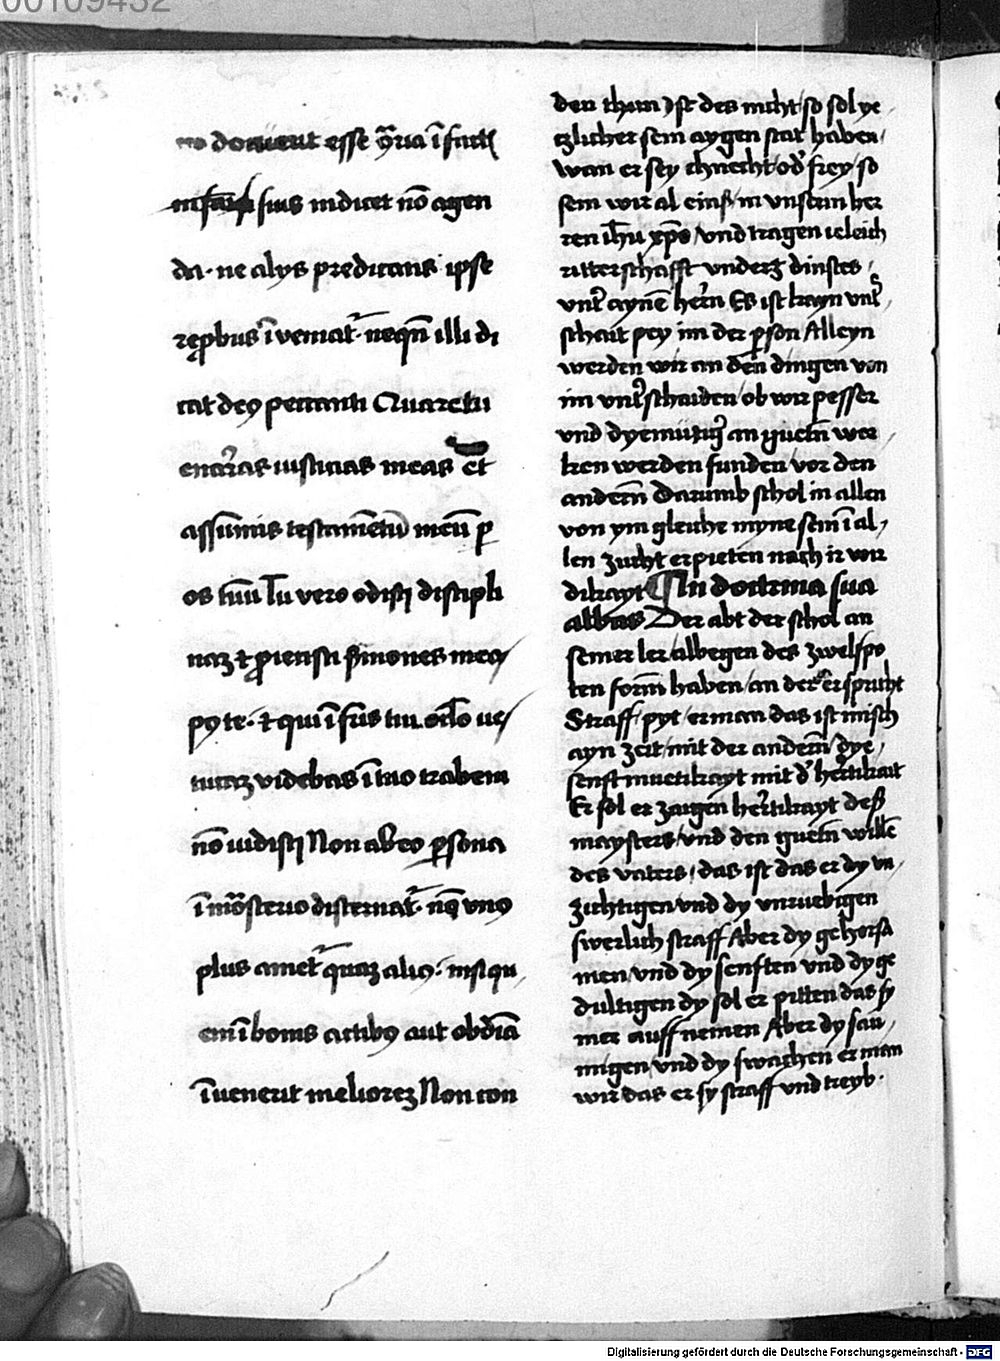 00109432
docuerit esse 9ͭria ī factis
suis indicet nō agen
da · ne alijs predicans ipse
reprobus īveniat᷑ · neqn̄ illi di
cat deꝯ peccanti Quare tu
enar̄as iusticias meas Et
assūmis testamētū meū ꝑ
os tuū Tu vero odisti discipli
naꝫ ⁊ ꝓiecisti ẜmones meos
p9 te · ⁊ qui ī fr̄is tui oc̄lo ue
tucaꝫ videbas ī tuo trabem
nō uidisti Non ab eo ꝑsona
ī mōsterio discernat᷑ · nō unꝯ
plus amet᷑ quaꝫ aliꝯ · nisi qu
em ī bonis actibꝯ aut obdīa
īuenerit melioreꝫ Non con
den thun ist des nicht / so sol ye
czlicher sein aygen stat haben /
wan er sey chnecht / od̓ frey / so
sein wir al eins / in vnserm her
ren ih̄u xp̄o / vnd tragen geleich
ritterschafft vnders dinstes /
vnt̓ aynē her̄n Es ist kayn vnt̓
schait pey im der ꝑson Alleyn
werden wir an den dingen von
im vnt̓schaiden / ob wir pesser
vnd dyemütig̓ an guetn̄ wer
ken werden funden / vor den
andern̄ Darumb schol in allen
von ym gleiche myne sein ī al /
len zucht erpieten nach ir wir
dikayt In doctrina sua
abbas Der abt der schol an
seiner ler albegen des zwelfpo
ten form̄ haben / an der er spricht
Straff / pyt / er man das ist misch
ayn zeit / mit der andern̄ / dye /
senftmuetikayt mit d̓ her̓tikait
Er sol er zaigen her̓tikayt deß
maysters / vnd den guetn̄ willē
des vaters / das ist das er dy vn /
zuchtigen vnd dy vnruebigen
swerlich straff Aber dy gehorsā
men / vnd dy senften vnd dy ge
dultigen dy sol er pitten das sy
mer auff nemen Aber dy sau /
migen / vnd dy swachen er man
wir das er sy straff vnd treyb ·
Digitalisierung gefördert durch die Deutsche Forschungsgemeinschaft - DFG